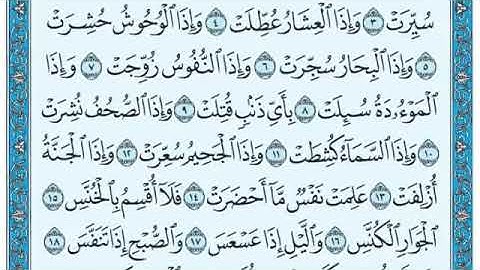 سُيِّرَتْ ٣ وَإِذَا ٱلْعِشَارُ عُطِّلَتْ ٤ وَإِذَا ٱلْوُحُوشُ حُشِرَتْ
٥ وَإِذَا ٱلْبِحَارُ سُجِّرَتْ ٦ وَإِذَا ٱلنُّفُوسُ زُوِّجَتْ ٧ وَإِذَا
ٱلْمَوْءُۥدَةُ سُئِلَتْ ٨ بِأَىِّ ذَنۢبٍ قُتِلَتْ ٩ وَإِذَا ٱلصُّحُفُ نُشِرَتْ
١٠ وَإِذَا ٱلسَّمَآءُ كُشِطَتْ ١١ وَإِذَا ٱلْجَحِيمُ سُعِّرَتْ ١٢ وَإِذَا ٱلْجَنَّةُ
أُزْلِفَتْ ١٣ عَلِمَتْ نَفْسٌ مَّآ أَحْضَرَتْ ١٤ فَلَآ أُقْسِمُ بِٱلْخُنَّسِ ١٥
ٱلْجَوَارِ ٱلْكُنَّسِ ١٦ وَٱلَّيْلِ إِذَا عَسْعَسَ ١٧ وَٱلصُّبْحِ إِذَا تَنَفَّسَ ١٨